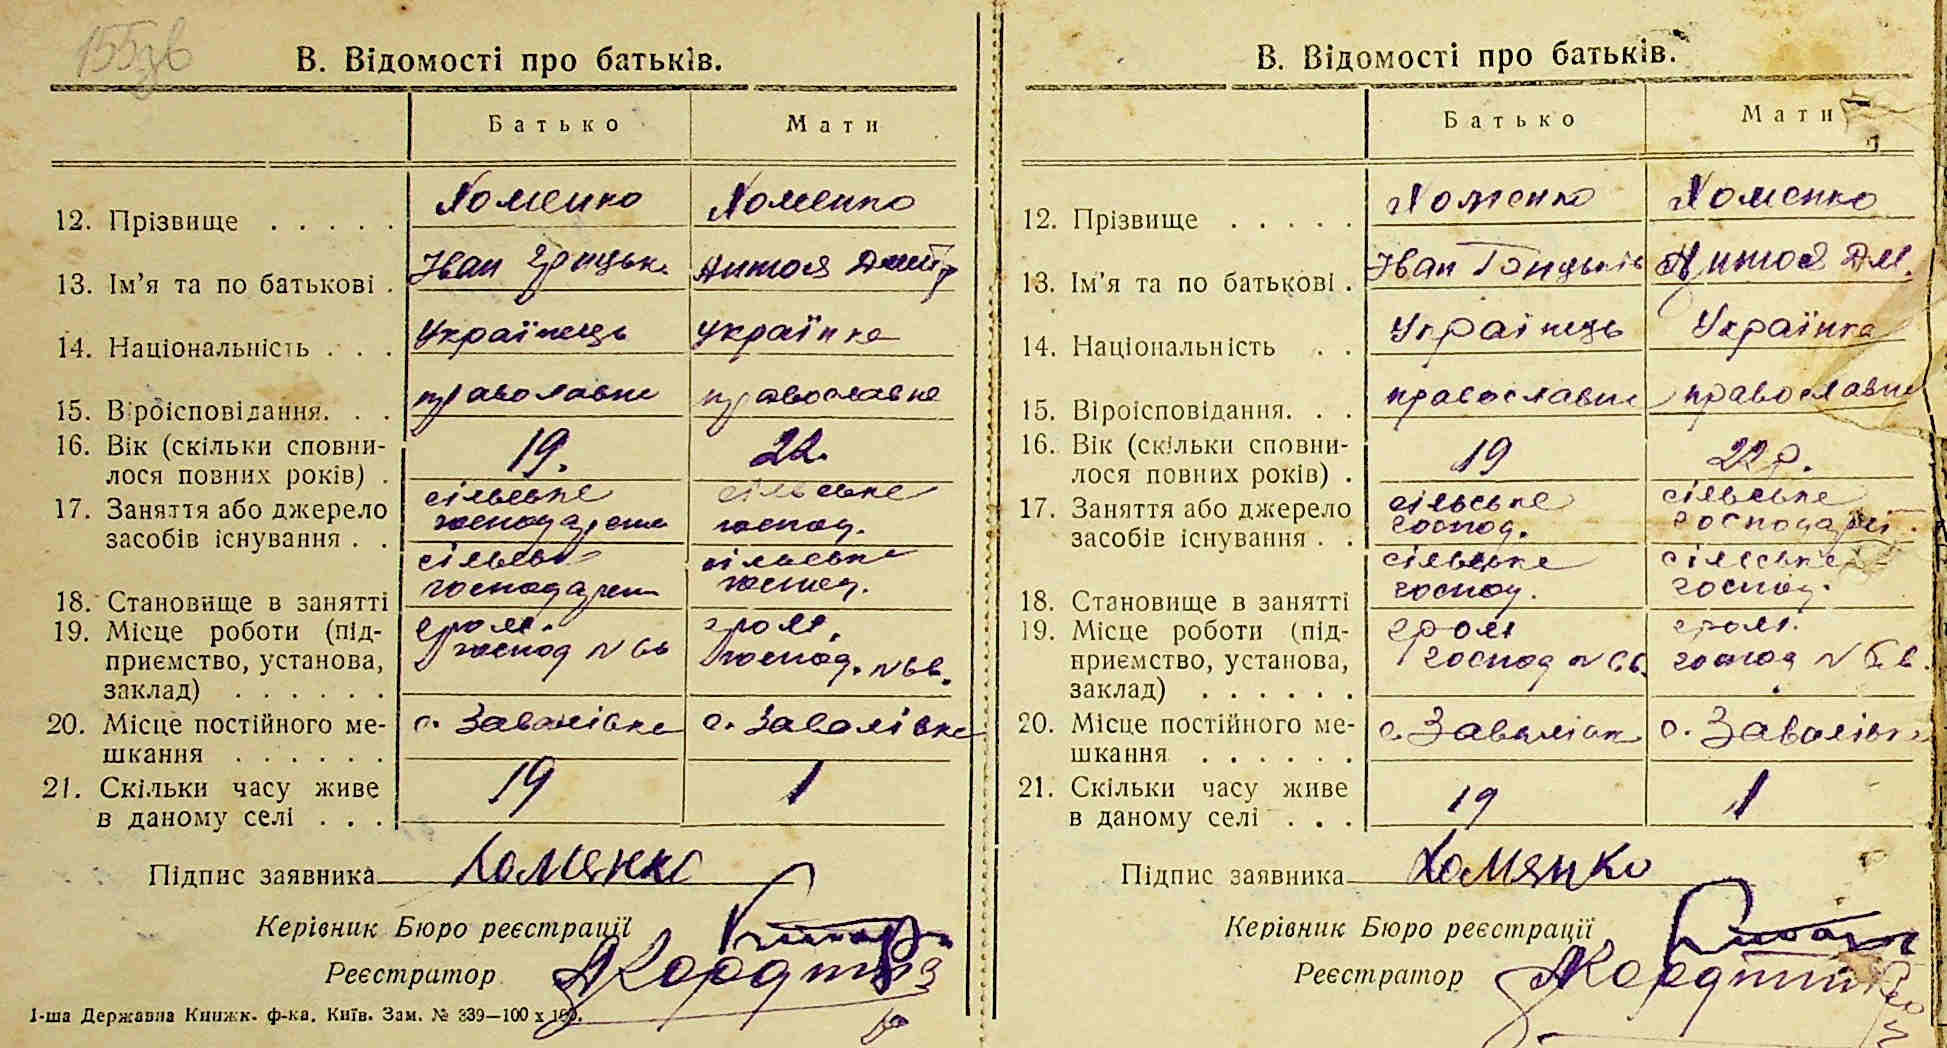 155зв
В. Відомості про батьків.
Батько Мати
12. Прізвище . . . . . Хоменко Хоменко
13. Ім'я та по батькові . Іван Грицьк. Дмитр
14. Національність . . . Українець українка
15. Віроісповідання. . . православне православне
16. Вік (скільки сповни-
лося повних років) . 19. 22.
17. Заняття або джерело сільське сільське
засобів існування . . господарство господ.
сільське сільське
18. Становище в занятті господарств господ.
19. Місце роботи (під- гром. гром.
приємство, установа, господ N 66 господ. N 66.
заклад) . . . . . .
20. Місце постійного ме- с. Завалівка с. Завалівка
шкання . . . . . .
21. Скільки часу живе 19 1
в даному селі . . .
Підпис заявника Хоменко
Керівник Бюро реєстрації
Реєстратор
1-ша Державна Книжк. ф-ка. Київ. Зам. № 339—100 х 100.
В. Відомості про батьків.
Батько Мати
12. Прізвище . . . . . Хоменко Хоменко
13. Ім'я та по батькові . Іван Грицьків Дм.
14. Національність . . Українець Українка
15. Віроісповідання. . . православне православне
16. Вік (скільки сповни-
лося повних років) . 19 22 р.
17. Заняття або джерело сільське сільське
засобів існування . . господ. господарст.
сільське сільське
18. Становище в занятті господ. господ.
19. Місце роботи (під- гром гром.
приємство, установа, господ N 66. господ N 66.
заклад) . . . . . .
20. Місце постійного ме- с. Завалівка с. Завалівка
шкання . . . . . .
21. Скільки часу живе 19 1
в даному селі . . .
Підпис заявника Хомянко
Керівник Бюро реєстрації
Реєстратор